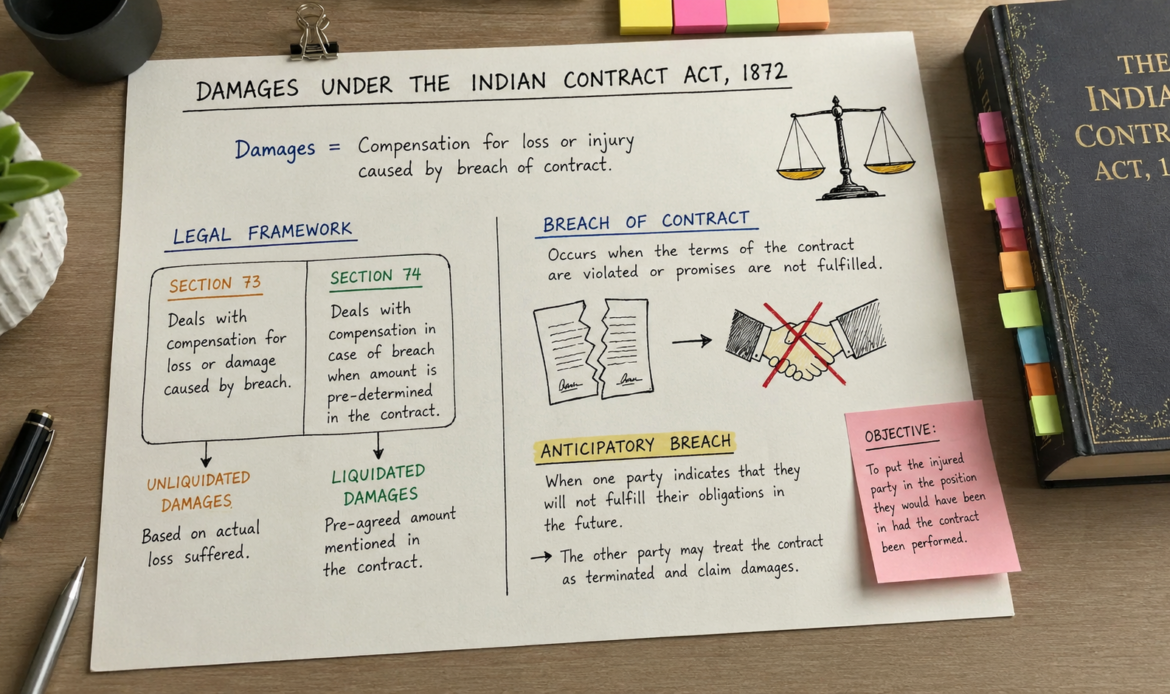 DAMAGES UNDER THE INDIAN CONTRACT ACT, 1872
Damages = Compensation for loss or injury
caused by breach of contract.
LEGAL FRAMEWORK
SECTION 73
Deals with
compensation for
loss or damage
caused by breach.
SECTION 74
Deals with
compensation in
case of breach
when amount is
pre-determined
in the contract.
UNLIQUIDATED
DAMAGES
Based on actual
loss suffered.
LIQUIDATED
DAMAGES
Pre-agreed amount
mentioned in
the contract.
BREACH OF CONTRACT
Occurs when the terms of the contract
are violated or promises are not fulfilled.
ANTICIPATORY BREACH
When one party indicates that they
will not fulfill their obligations in
the future.
→ The other party may treat the contract
as terminated and claim damages.
OBJECTIVE:
To put the injured
party in the position
they would have been
in had the contract
been performed.
THE
INDIA
CONTR
ACT, 1